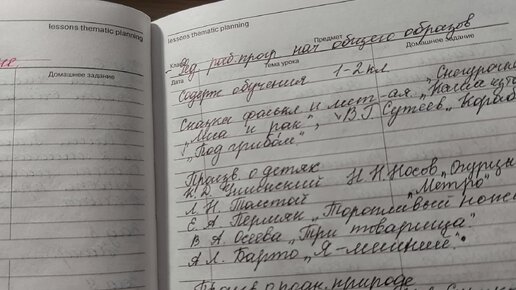 lessons thematic planning
Домашнее задание
lessons thematic planning
Класс Предмет
Дата Тема урока Домашнее задание
раб. прогр нач общего образов
Содерж обучения 1-2 кл
Сказки фольк и лит-ая. „Снегурочка
„Лиса и рак", „Каша из
„Под грибом", В Г Сутеев „Кораб
Произв. о детях
К. Д. Ушинский Н Н. Носов „Огурцы
Л. Н. Толстой „Метро"
Е. А. Пермяк „Торопливый нож
В А. Осеева „Три товарища"
А Л. Барто „Я-лишний".
Произв о родн. природе